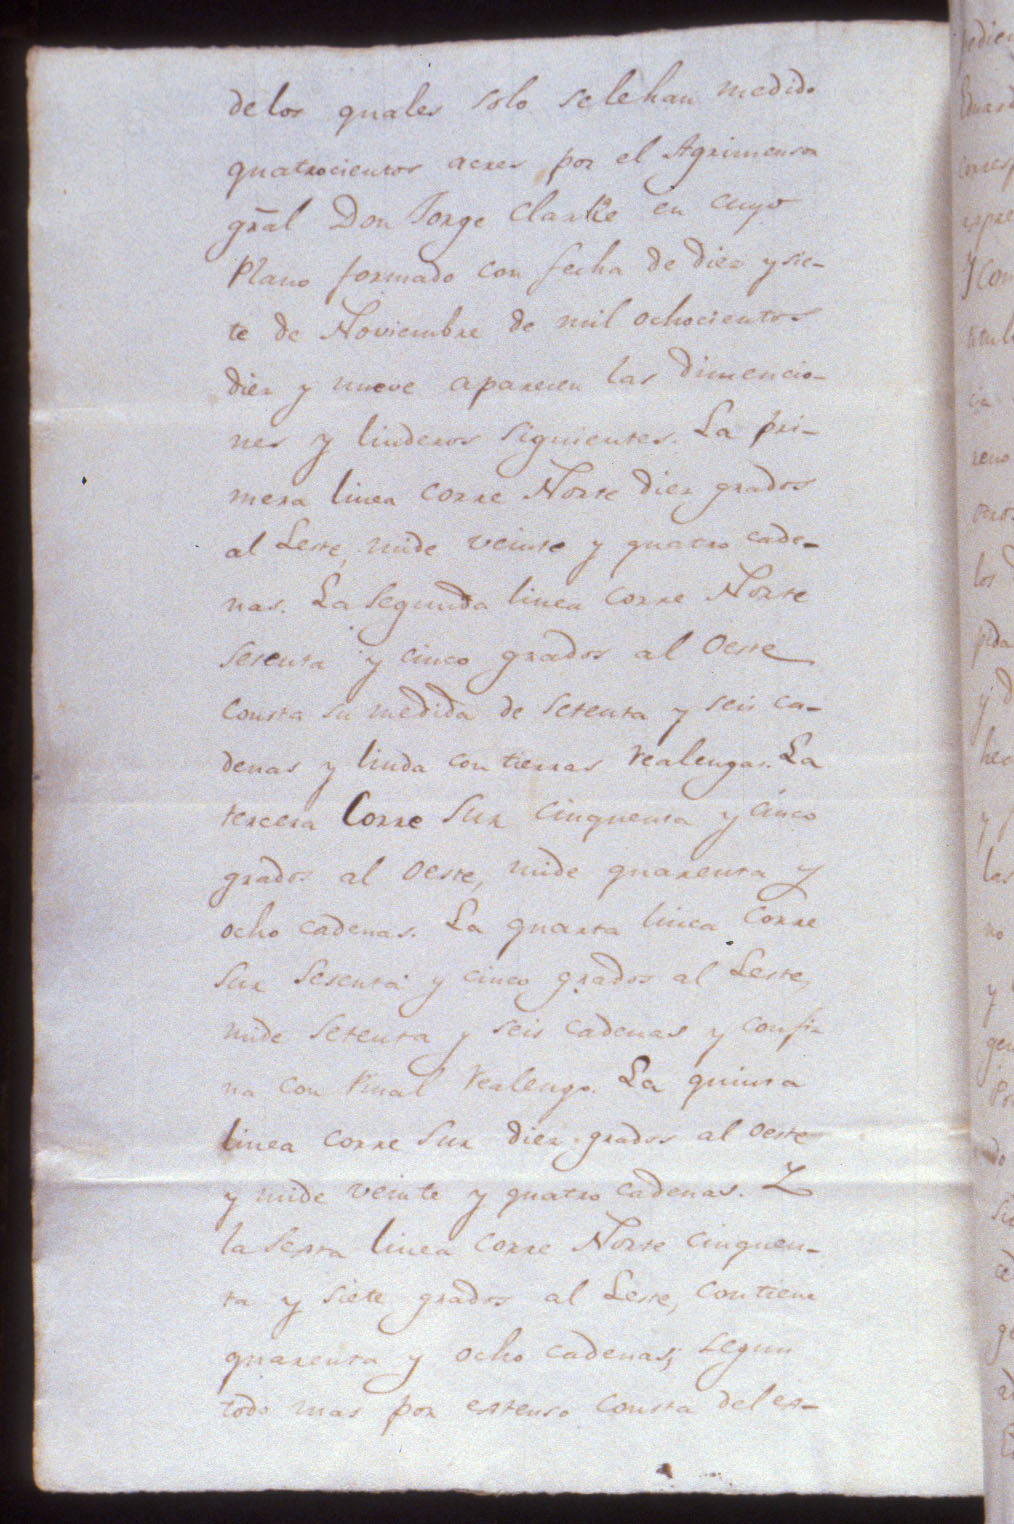 de los quales solo se le han medido
quatrocientos acres por el Agrimensor
gral Don Jorge Clarke en cuyo
Plano formado con fecha de diez y sie-
te de Noviembre de mil ochocientos
diez y nueve aparecen las dimencio-
nes y linderos siguientes. La pri-
mera linea corre Norte diez grados
al Leste, mide veinte y quatro cade-
nas. La Segunda linea corre Norte
sesenta y cinco grados al Oeste
consta su medida de setenta y seis ca-
denas y linda con tierras realengas. La
tercera Corre Sur cinquenta y cinco
grados al Oeste, mide quarenta y
ocho cadenas. La quarta linea Corre
Sur Sesenta y cinco grados al Leste,
mide setenta y seis cadenas y confi-
na con Pinal Realengo. La quinta
linea corre Sur diez grados al Oeste
y mide veinte y quatro cadenas. Y
la Sexta linea corre Norte cinquen-
ta y siete grados al Leste, contiene
quarenta y ocho cadenas; segun
todo mas por extenso consta del ex-